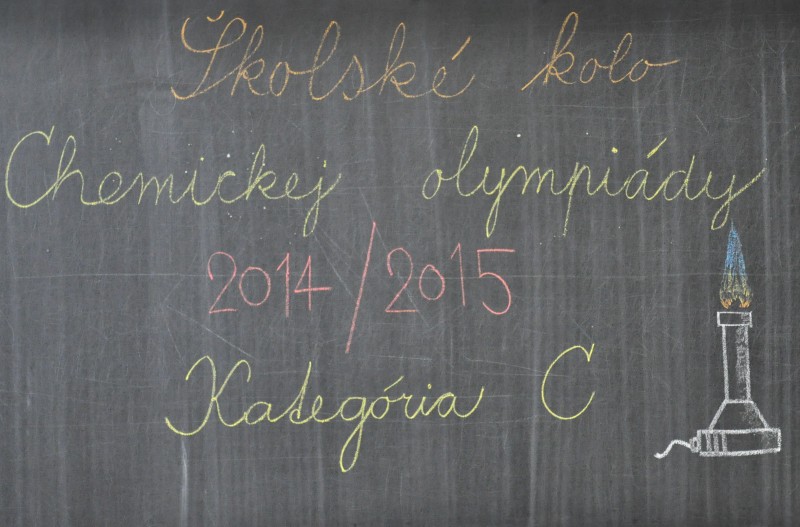 Školské kolo
Chemickej olympiády
2014/2015
Kategória C